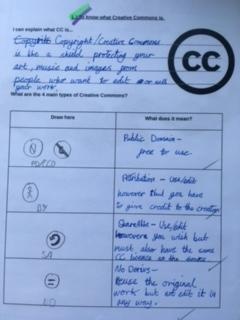 to know what Creative Commons is.
I can explain what CC is...
Copyright Copyright/Creative Commons
is like a shield protecting your
art, music and images from
people who want to edit or sell
your work.
What are the 4 main types of Creative Commons?
CC
Draw here
What does it mean?
PD/CC0
Public Domain -
free to use.
BY
Attribution - Use/edit
however but you have
to give credit to the creator
SA
ShareAlike - Use/edit
however you wish but
must also have the same
CC licence as the
ND
No Derivs -
use the original
work but edit it in
any way.